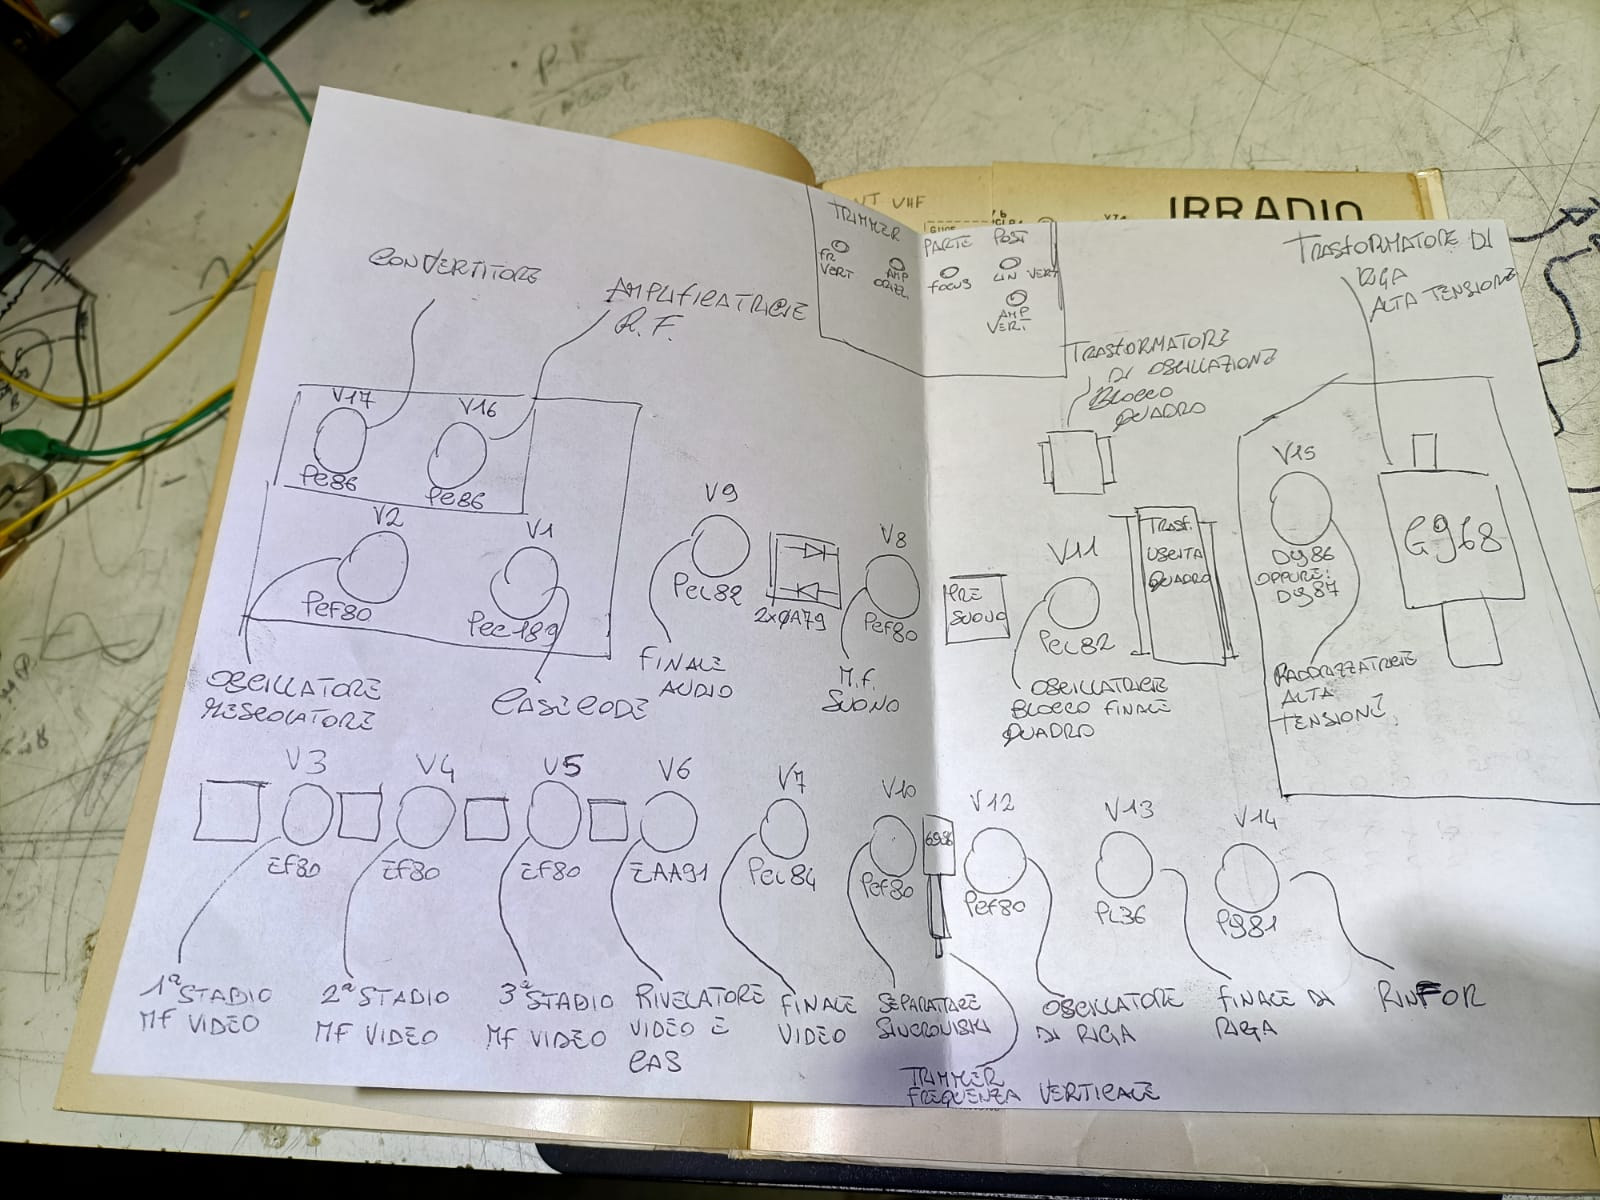 VT VHF
IRRADIO
TRIMMER
PARTE POST
FR
VERT
AMP
ORIZZ.
FOCUS
LIN VERT
AMP
VERT
CONVERTITORE
AMPLIFICATRICE
R.F.
TRASFORMATORE DI
RIGA
ALTA TENSIONE
TRASFORMATORE
DI OSCILLAZIONE
BLOCCO
QUADRO
V17
PC86
V16
PC86
V2
PCF80
V1
PCC189
V9
PCL82
2xOA79
V8
PCF80
PRE
SUONO
V11
PCL82
TRASF.
USCITA
QUADRO
V15
DY86
OPPURE:
DY87
G968
OSCILLATORE
MESCOLATORE
CASCODE
FINALE
AUDIO
M.F.
SUONO
OSCILLATRICE
BLOCCO FINALE
QUADRO
RADDRIZZATRICE
ALTA
TENSIONE
V3
EF80
V4
EF80
V5
EF80
V6
EAA91
V7
PCL84
V10
PCF80
V12
PCF80
V13
PL36
V14
PY81
1ª STADIO
MF VIDEO
2ª STADIO
MF VIDEO
3ª STADIO
MF VIDEO
RIVELATORE
VIDEO E
CAS
FINALE
VIDEO
SEPARATORE
SINCRONISMI
OSCILLATORE
DI RIGA
FINALE DI
RIGA
RINFOR
TRIMMER
FREQUENZA VERTICALE